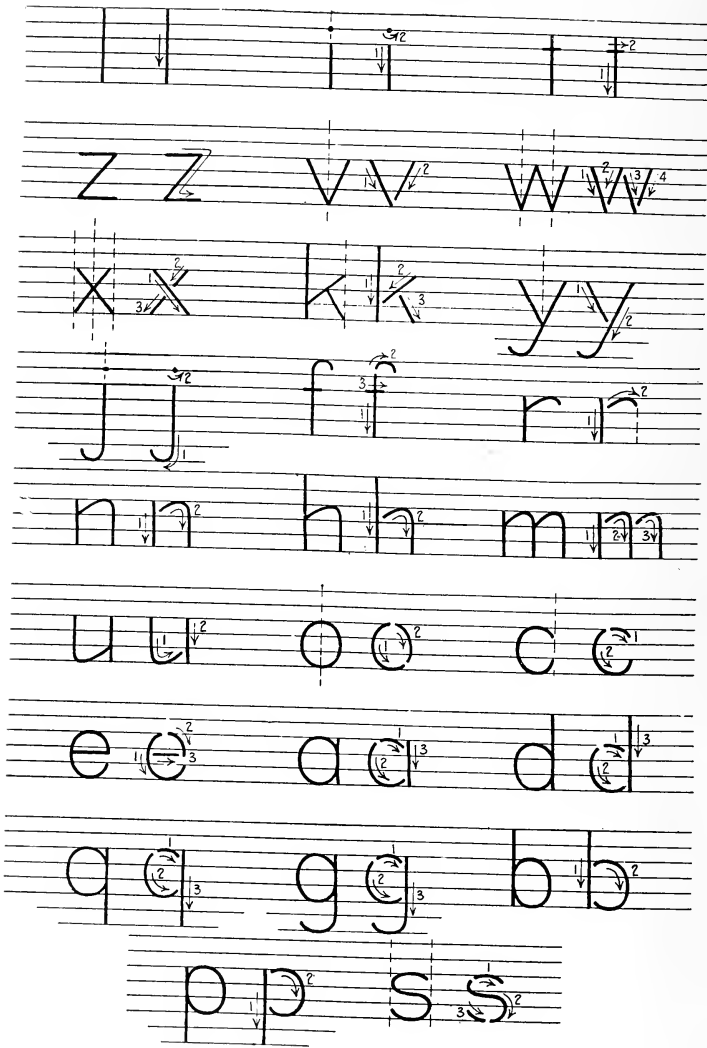 l l i i t t
z z v v w w
x x k k y y
j j f f r r
n n h h m m
u u o o c c
e e a a d d
q q g g b b
p p s s